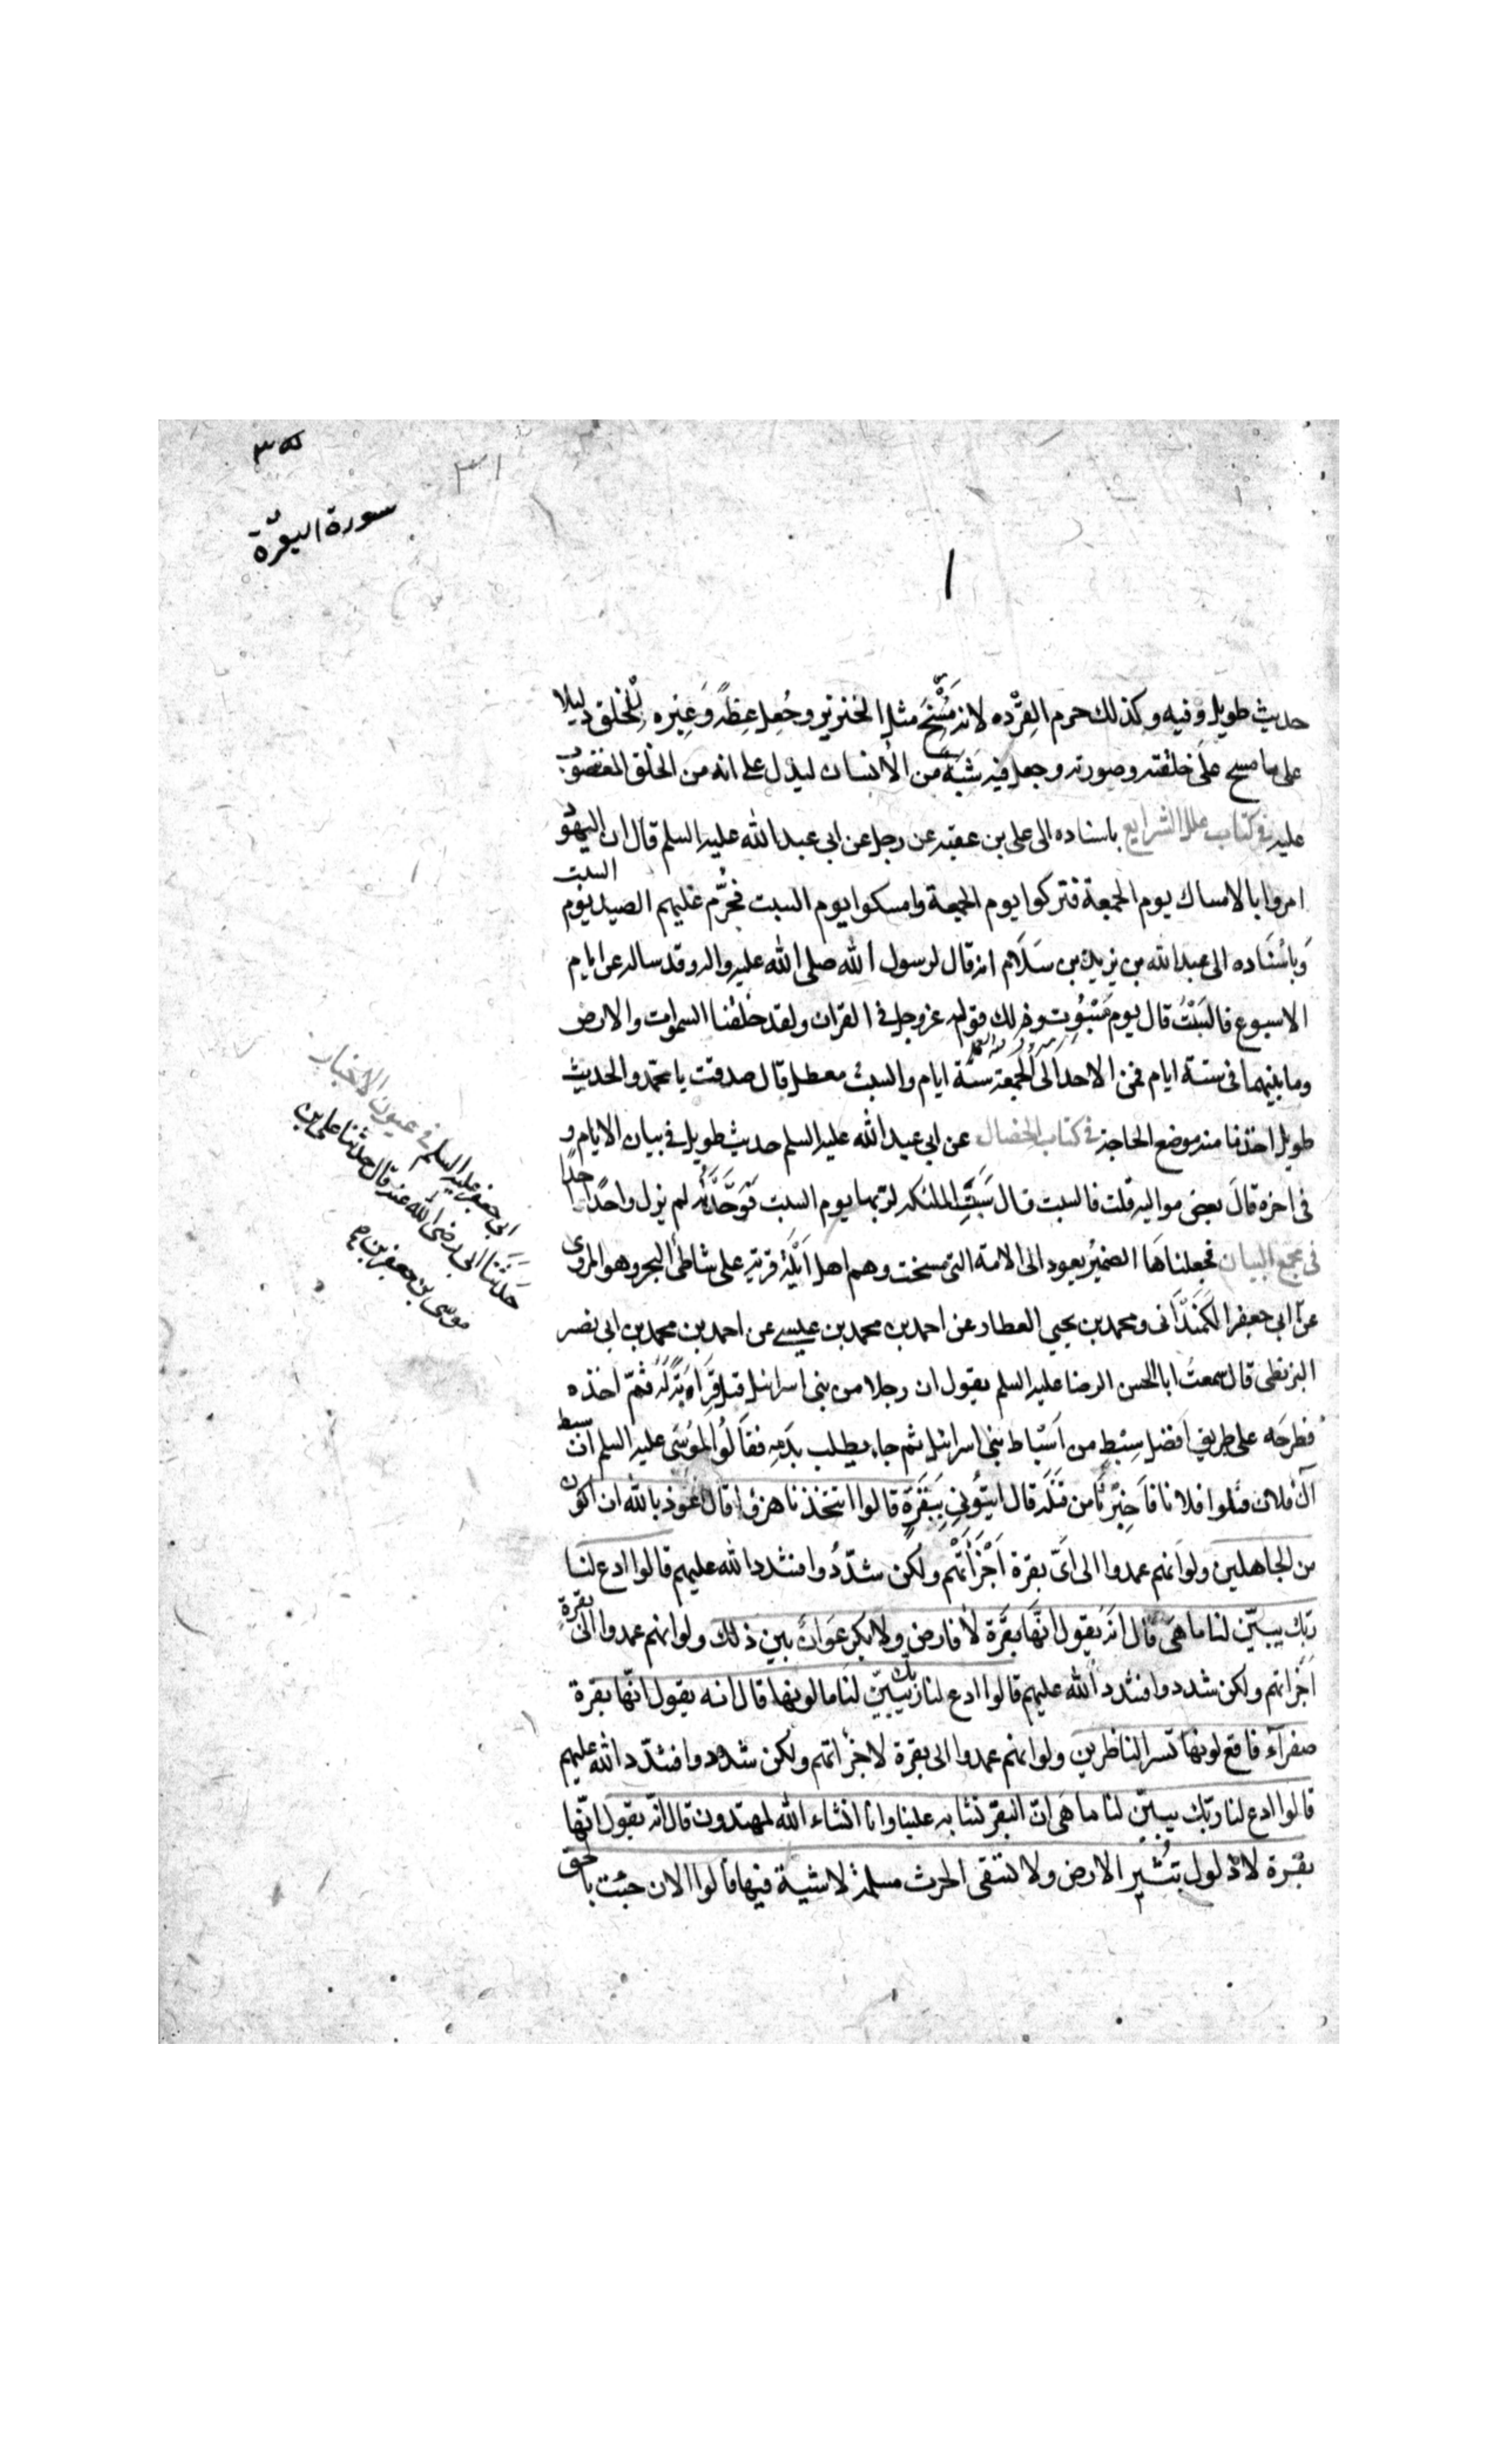 ٣٥
٣١
سورة البقرة
١
حديث طويل وفيه وكذلك حرم القردة لانه مسخ مثل الخنزير وجعل عظة وعبرة للخلق دليلا
على ما مسخ على خلقته وصورته وجعل فيه شبه من الانسان ليدل على انه من الخلق المغضوب
عليه في كتاب علل الشرايع باسناده الى على بن عقبه عن رجل عن ابى عبد الله عليه السلم قال ان اليهود
امروا بالامساك يوم الجمعة فتركوا يوم الجمعة وامسكوا يوم السبت فحرم عليهم الصيد يوم السبت
وباسناده الى عبد الله بن يزيد بن سلام انه قال لرسول الله صلى الله عليه واله وقد ساله عن ايام
الاسبوع فالسبت قال يوم مسبوت وذلك قوله عز وجل في القران ولقد خلقنا السموات والارض
وما بينهما فى ستة ايام فمن الاحد الى الجمعة ستة ايام والسبت معطل قال صدقت يا محمد والحديث
طويل اخذنا منه موضع الحاجة في كتاب الخصال عن ابى عبد الله عليه السلم حديث طويل في بيان الايام و
فى اخره قال بعض مواليه قلت فالسبت قال سبتت الملئكه لربها يوم السبت فوحدته لم يزل واحدا
فى مجمع البيان فجعلناها الضمير يعود الى الامة التى مسخت وهم اهل ايلة قرية على شاطئ البحر وهو المروى
عن ابى جعفر عليه السلم في عيون الاخبار
حدثنا ابى رضى الله عنه قال حدثنا على بن
موسى بن جعفر بن
ابى جعفر الكمندانى ومحمد بن يحيى العطار عن احمد بن محمد بن عيسى عن احمد بن محمد بن ابى نصر
البزنطى قال سمعت ابا الحسن الرضا عليه السلم يقول ان رجلا من بنى اسرائيل قتل قرابة له ثم اخذه
فطرحه على طريق افضل سبط من اسباط بنى اسرائيل ثم جاء يطلب بدمه فقالوا لموسى عليه السلم ان سبط
آل فلان قتلوا فلانا فاخبرنا من قتله قال ايتونى ببقرة قالوا اتتخذنا هزوا قال اعوذ بالله ان اكون
من الجاهلين ولو انهم عمدوا الى اى بقرة اجزأتهم ولكن شددوا فشدد الله عليهم قالوا ادع لنا
ربك يبين لنا ما هى قال انه يقول انها بقرة لا فارض ولا بكر عوان بين ذلك ولو انهم عمدوا الى بقرة
اجزاتهم ولكن شددوا فشدد الله عليهم قالوا ادع لنا ربك يبين لنا ما لونها قال انه يقول انها بقرة
صفرآء فاقع لونها تسر الناظرين ولو انهم عمدوا الى بقرة لاجزاتهم ولكن شددوا فشدد الله عليهم
قالوا ادع لنا ربك يبين لنا ما هى ان البقر تشابه علينا وانا انشاء الله لمهتدون قال انه يقول انها
بقرة لا ذلول تثير الارض ولا تسقى الحرث مسلمة لا شية فيها قالوا الان جئت بالحق